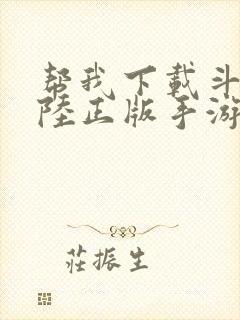 帮我下载斗
陸正版手游
莊振生